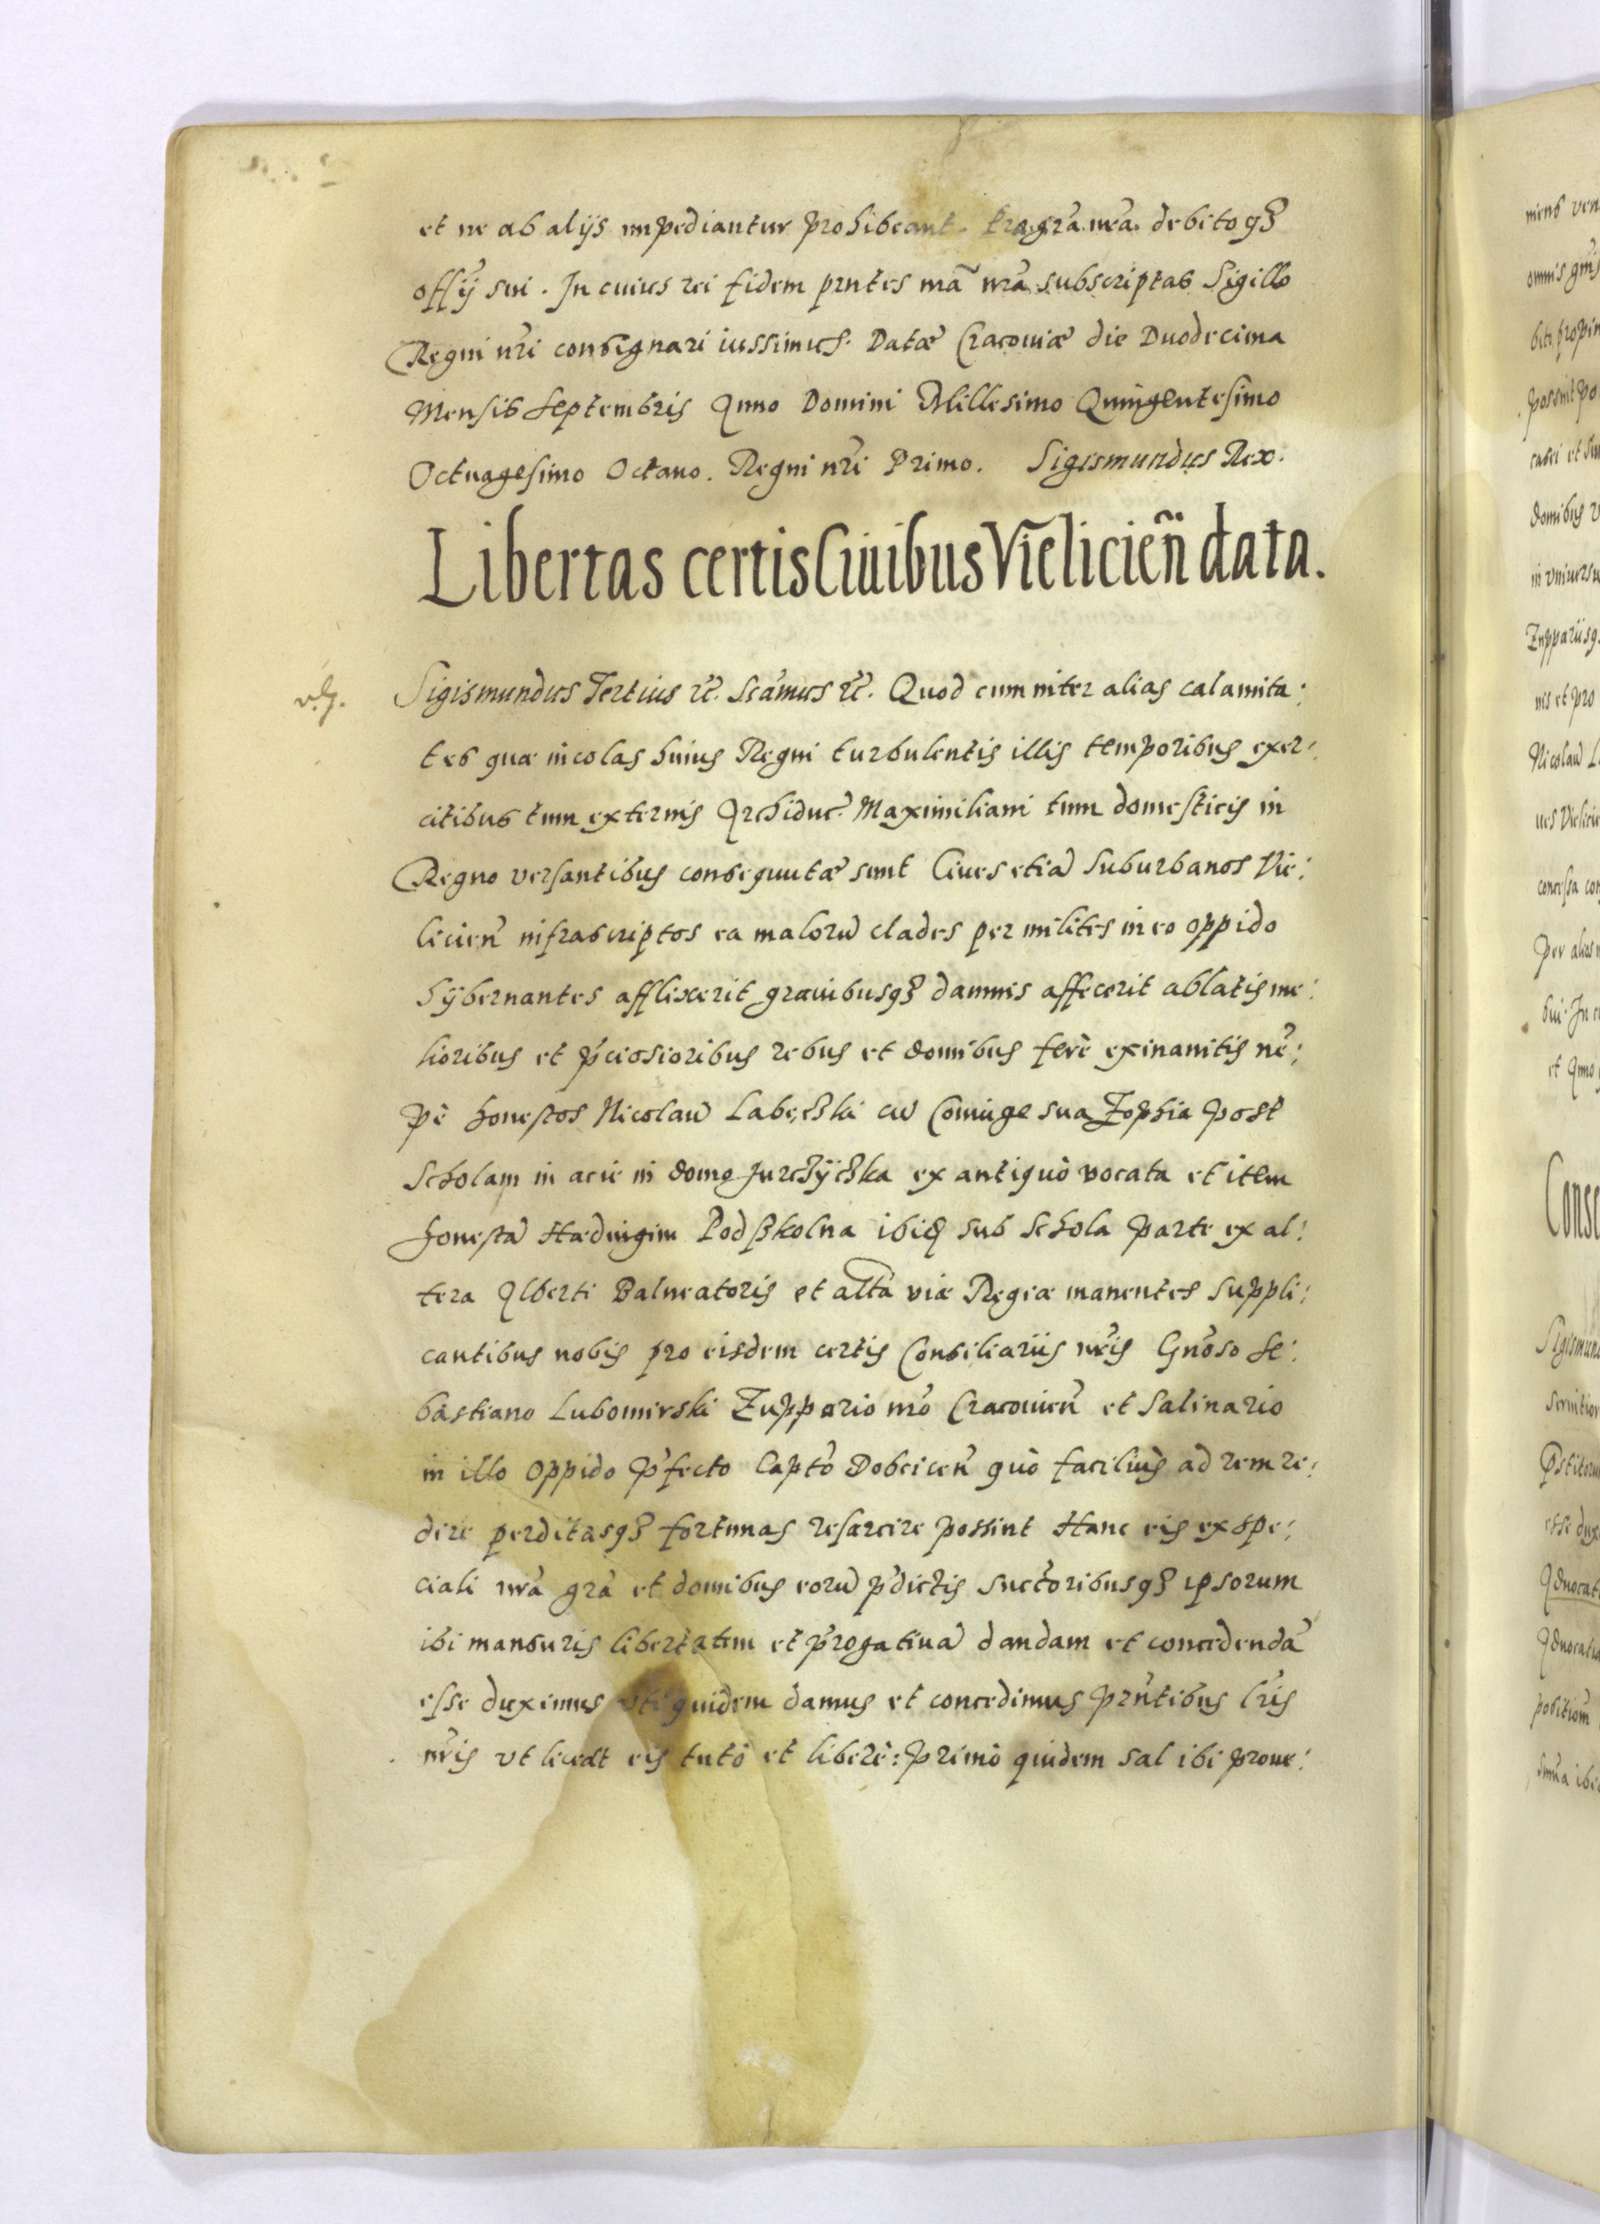 et ne ab alijs impediantur prohibeant. gra. nra. debitoq3
offÿ sui. In cuius rei fidem pntes mã nra subscriptas Sigillo
Regni nri consignari iussimus. Datæ Cracouiæ die Duodecima
Mensis Septembris Anno Domini Millesimo Quingentesimo
Octuagesimo Octauo. Regni nri Primo. Sigismundus Rex.
Libertas certis Ciuibus Vielicień data.
Sigismundus Tertius rc. Scamus rc. Quod cum inter alias calamita:
tes quæ incolas huius Regni turbulentis illis temporibus exer:
citibus tum externis Archiduc. Maximiliani tum domesticis in
Regno versantibus consequutæ sunt Ciues etiã Suburbanos Vie:
licien infrascriptos ea malorũ clades per milites in eo oppido
hÿbernantes afflixerit grauibusq3 damnis affecerit ablatis me:
lioribus et pciosioribus rebus et domibus ferè exinanitis nẽ:
pè honestos Nicolaũ Labęczki cũ Coniuge sua Zophia post
Scholam in acie in domo Jurczÿczka ex antiquò vocata et item
honestã Hæduigim Podßkolna ibiđ sub Schola parte ex al:
tera Alberti Balneatoris et alta viæ Regiæ manentes suppli:
cantibus nobis pro eisdem certis Consiliariis nris Gnoso Se:
bastiano Lubomirski Zuppario nro Cracouien et Salinario
in illo oppido pfecto Capto Dobcicen quò faciliùs ad rem re:
dire perditasq3 fortunas resarcire possint Hanc eis ex spe:
ciali nra gra et domibus eorũ pdictis suctoribusq3 ipsorum
ibi mansuris libertatem et progatiuã dandam et concedendã
esse duximus vti quidem damus et concedimus pntibus lris
nris vt liceat eis tutò et liberè: primò quidem sal ibi proue: